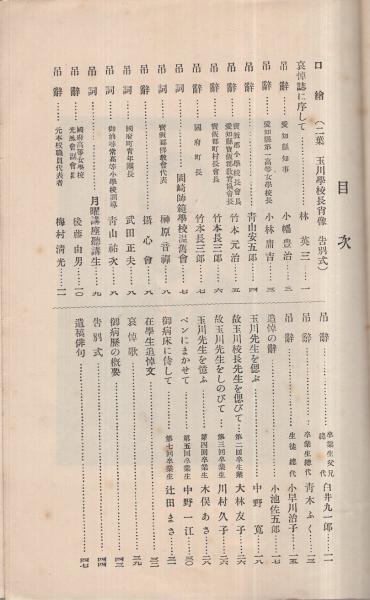 目次
口繪(二葉 玉川學校長肖像 告別式)
哀悼誌に序して……林英三…一
弔辭……愛知縣知事 小幡豊治…三
弔辭……愛知縣第一高等女學校長 小林庸吉…三
弔辭……青山安五郎…四
弔辭……竹本元治…五
弔辭……寳飯郡町村長會長 竹本長三郎…六
弔辭……國府町長 竹本長三郎…七
弔詞……岡崎師範學校溫舊會…七
弔辭……寳飯郡佛教會代表 榊原音禪…八
弔辭……攝心會…八
弔詞……國府町青年團長 武田正夫…八
弔詞……御油尋常高等小學校訓導 青山祐次…九
弔詞……月曜講座聽講生…九
弔辭……國府高等女學校 光風會副會長 後藤由男…一〇
弔辭……元本校職員代表者 梅村清光…一一
弔辭……卒業生父兄總代 白井九一郎…一一
弔辭……卒業生總代 青木ふく…一三
弔辭……生徒總代 小早川治子…一五
追悼の辭……小池佐五郎…一七
玉川先生を偲ぶ……中野寬…一八
故玉川校長先生を偲びて……第二回卒業 大林友子…二六
故玉川先生をしのびて……第三回卒業生 川村久子…二六
玉川先生を憶ふ……第四回卒業生 木俣あさ…二八
ペンにまかせて……第五回卒業生 中野一江…三〇
御病床に侍して……第七回卒業生 辻田まさ…三一
在學生追悼文……三二
哀悼歌……三九
御病歷の概要……四三
告別式……四四
遺稿俳句……四七